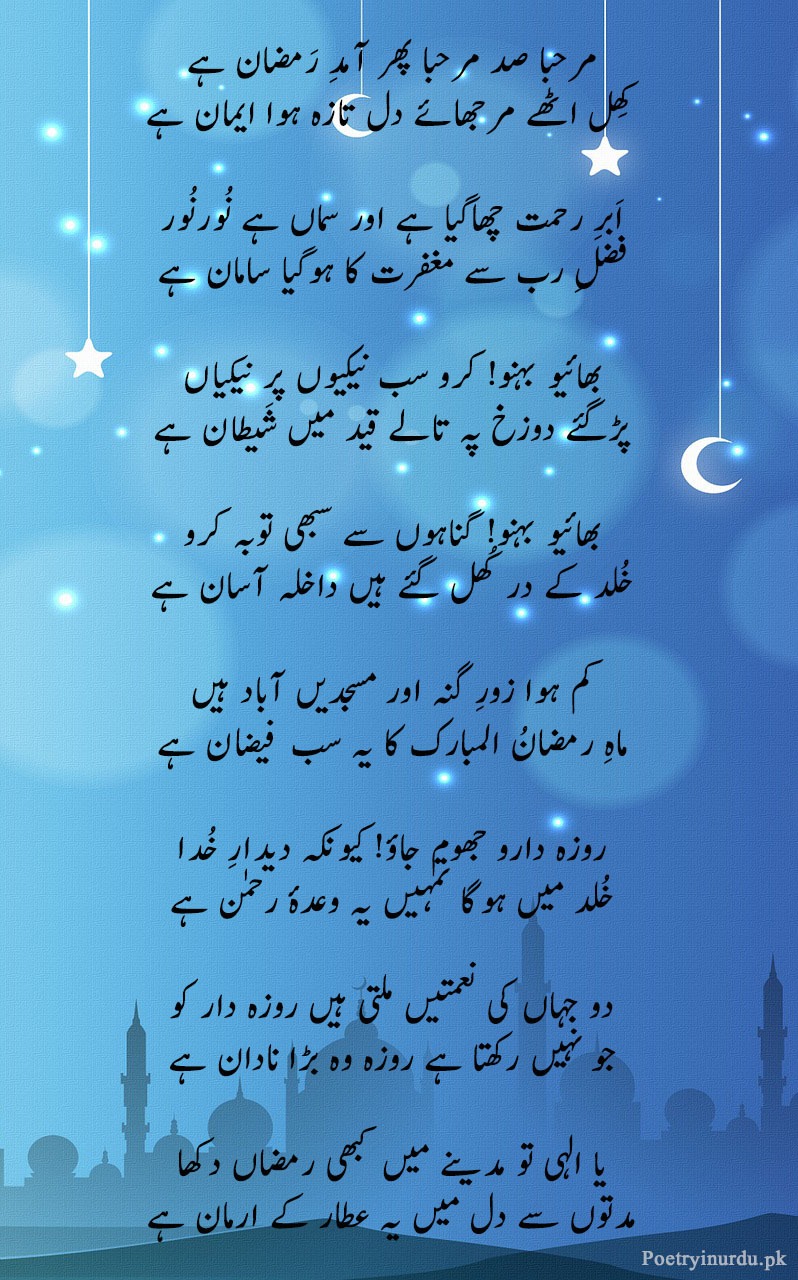 مرحبا صد مرحبا پھر آمدِ رَمضان ہے
کِھل اٹھے مرجھائے دل تازہ ہوا ایمان ہے
اَبرِ رحمت چھاگیا ہے اور سماں ہے نُور نُور
فضلِ رب سے مغفرت کا ہوگیا سامان ہے
بھائیو بہنو! کرو سب نیکیوں پر نیکیاں
پڑگئے دوزخ پہ تالے قید میں شَیطان ہے
بھائیو بہنو! گناہوں سے سبھی توبہ کرو
خُلد کے در کُھل گئے ہیں داخلہ آسان ہے
کم ہوا زورِ گنہ اور مسجدیں آباد ہیں
ماہِ رمضانُ المبارک کا یہ سب فیضان ہے
روزہ دارو جھوم جاؤ! کیونکہ دیدارِ خُدا
خُلد میں ہوگا تمہیں یہ وعدۂ رحمٰن ہے
دو جہاں کی نعمتیں ملتی ہیں روزہ دار کو
جو نہیں رکھتا ہے روزہ وہ بڑا نادان ہے
یا الہی تو مدینے میں کبھی رمضاں دکھا
مدتوں سے دل میں یہ عطار کے ارمان ہے
Poetryinurdu.pk